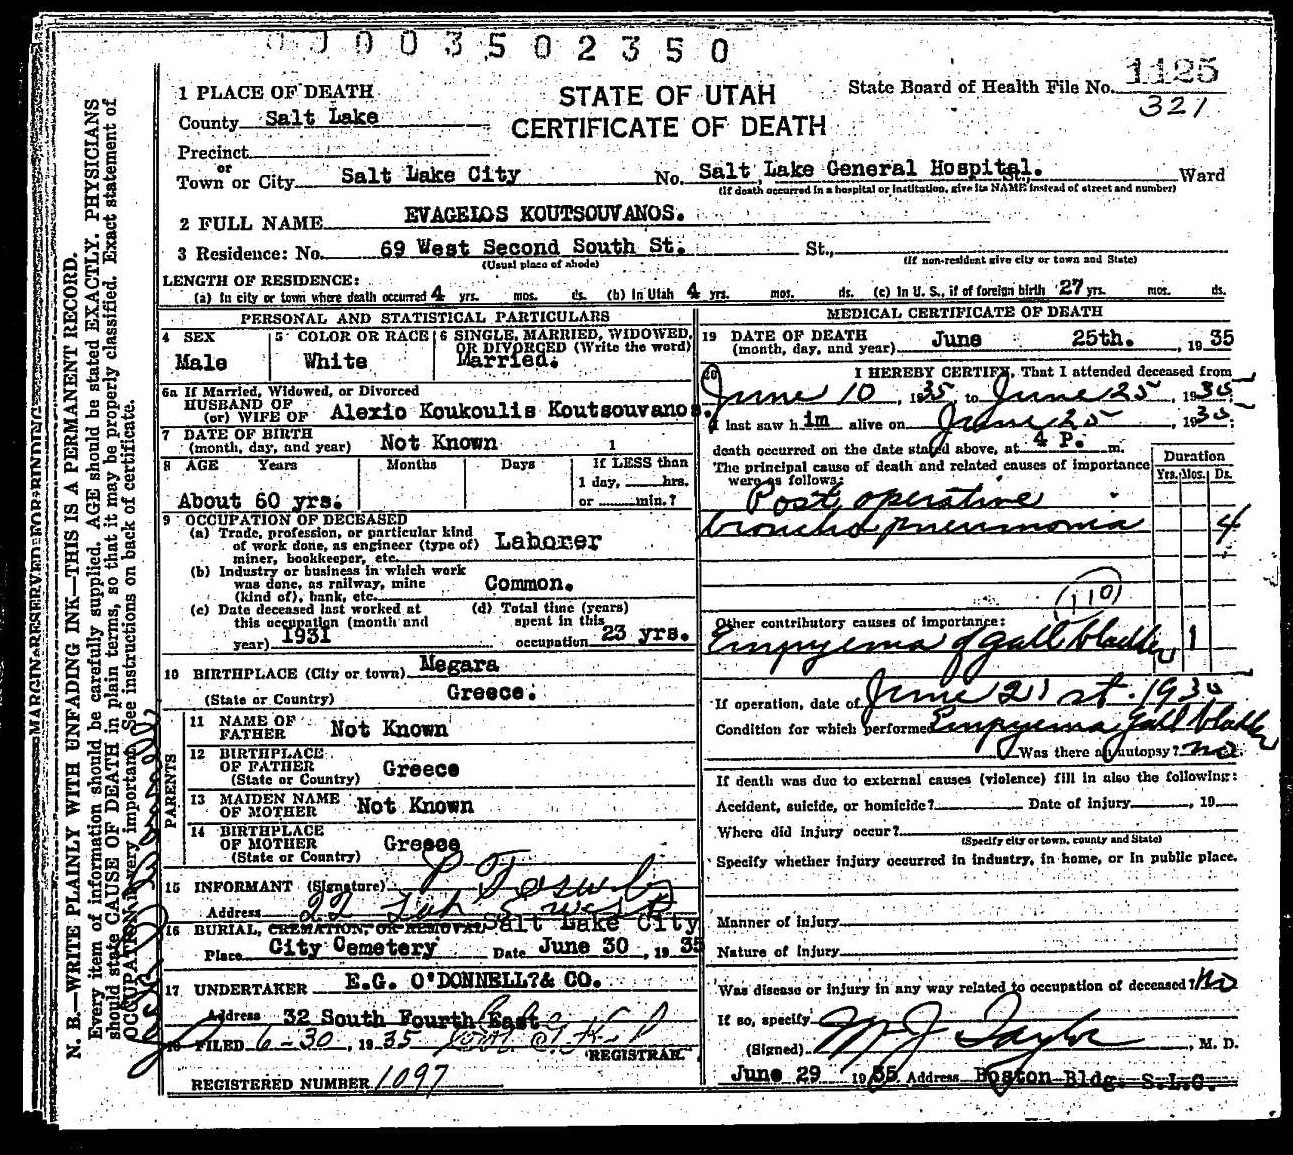 00003502350
1 PLACE OF DEATH
STATE OF UTAH
CERTIFICATE OF DEATH
State Board of Health File No. 1125
321
County Salt Lake
Precinct
or
Town or City Salt Lake City No. Salt Lake General Hospital. St., Ward
(If death occurred in a hospital or institution, give its NAME instead of street and number)
2 FULL NAME EVAGELOS KOUTSOUVANOS.
3 Residence: No. 69 West Second South St. St.,
(Usual place of abode) (If non-resident give city or town and State)
LENGTH OF RESIDENCE:
(a) In city or town where death occurred 4 yrs. mos. ds. (b) In Utah 4 yrs. mos. ds. (c) In U. S., if of foreign birth 27 yrs. mos. ds.
PERSONAL AND STATISTICAL PARTICULARS
4 SEX
Male
5 COLOR OR RACE
White
6 SINGLE, MARRIED, WIDOWED,
OR DIVORCED (Write the word)
Married.
6a If Married, Widowed, or Divorced
HUSBAND OF
(or) WIFE OF Alexio Koukoulis Koutsouvanos.
7 DATE OF BIRTH
(month, day, and year) Not Known 1
8 AGE Years Months Days If LESS than
1 day, hrs.
About 60 yrs. or min.?
9 OCCUPATION OF DECEASED
(a) Trade, profession, or particular kind
of work done, as engineer (type of)
miner, bookkeeper, etc. Laborer
(b) Industry or business in which work
was done, as railway, mine
(kind of), bank, etc. Common.
(c) Date deceased last worked at
this occupation (month and
year) 1931
(d) Total time (years)
spent in this
occupation 23 yrs.
10 BIRTHPLACE (City or town) Megara
(State or Country) Greece.
PARENTS
11 NAME OF
FATHER Not Known
12 BIRTHPLACE
OF FATHER Greece
(State or Country)
13 MAIDEN NAME
OF MOTHER Not Known
14 BIRTHPLACE
OF MOTHER Greece
(State or Country)
15 INFORMANT (Signature) P
Address 22 West
16 BURIAL, CREMATION, OR REMOVAL Salt Lake City
Place City Cemetery Date June 30, 1935
17 UNDERTAKER E.G. O'DONNELL?& CO.
Address 32 South Fourth East
18 FILED 6-30, 1935
REGISTRAR.
REGISTERED NUMBER 1097
MEDICAL CERTIFICATE OF DEATH
19 DATE OF DEATH
(month, day, and year) June 25th., 1935
20 I HEREBY CERTIFY, That I attended deceased from
June 10, 1935, to June 25, 1935
I last saw h im alive on June 25, 1935;
death occurred on the date stated above, at 4 P. m.
The principal cause of death and related causes of importance
were as follows:
Duration
Yrs. Mos. Ds.
Post operative
broncho pneumonia 4
110
Other contributory causes of importance:
Empyema of gall bladder 1
If operation, date of June 21st. 1935
Condition for which performed Empyema gall bladder
Was there an autopsy? no
If death was due to external causes (violence) fill in also the following:
Accident, suicide, or homicide? Date of injury, 19
Where did injury occur?
(Specify city or town, county and State)
Specify whether injury occurred in industry, in home, or in public place.
Manner of injury
Nature of injury
Was disease or injury in any way related to occupation of deceased? No
If so, specify
(Signed) M J Taylor, M. D.
June 29 1935 Address Boston Bldg. S.L.C.
MARGIN RESERVED FOR BINDING
N. B.—WRITE PLAINLY WITH UNFADING INK—THIS IS A PERMANENT RECORD.
Every item of information should be carefully supplied. AGE should be stated EXACTLY. PHYSICIANS
should state CAUSE OF DEATH in plain terms, so that it may be properly classified. Exact statement of
OCCUPATION is very important. See instructions on back of certificate.